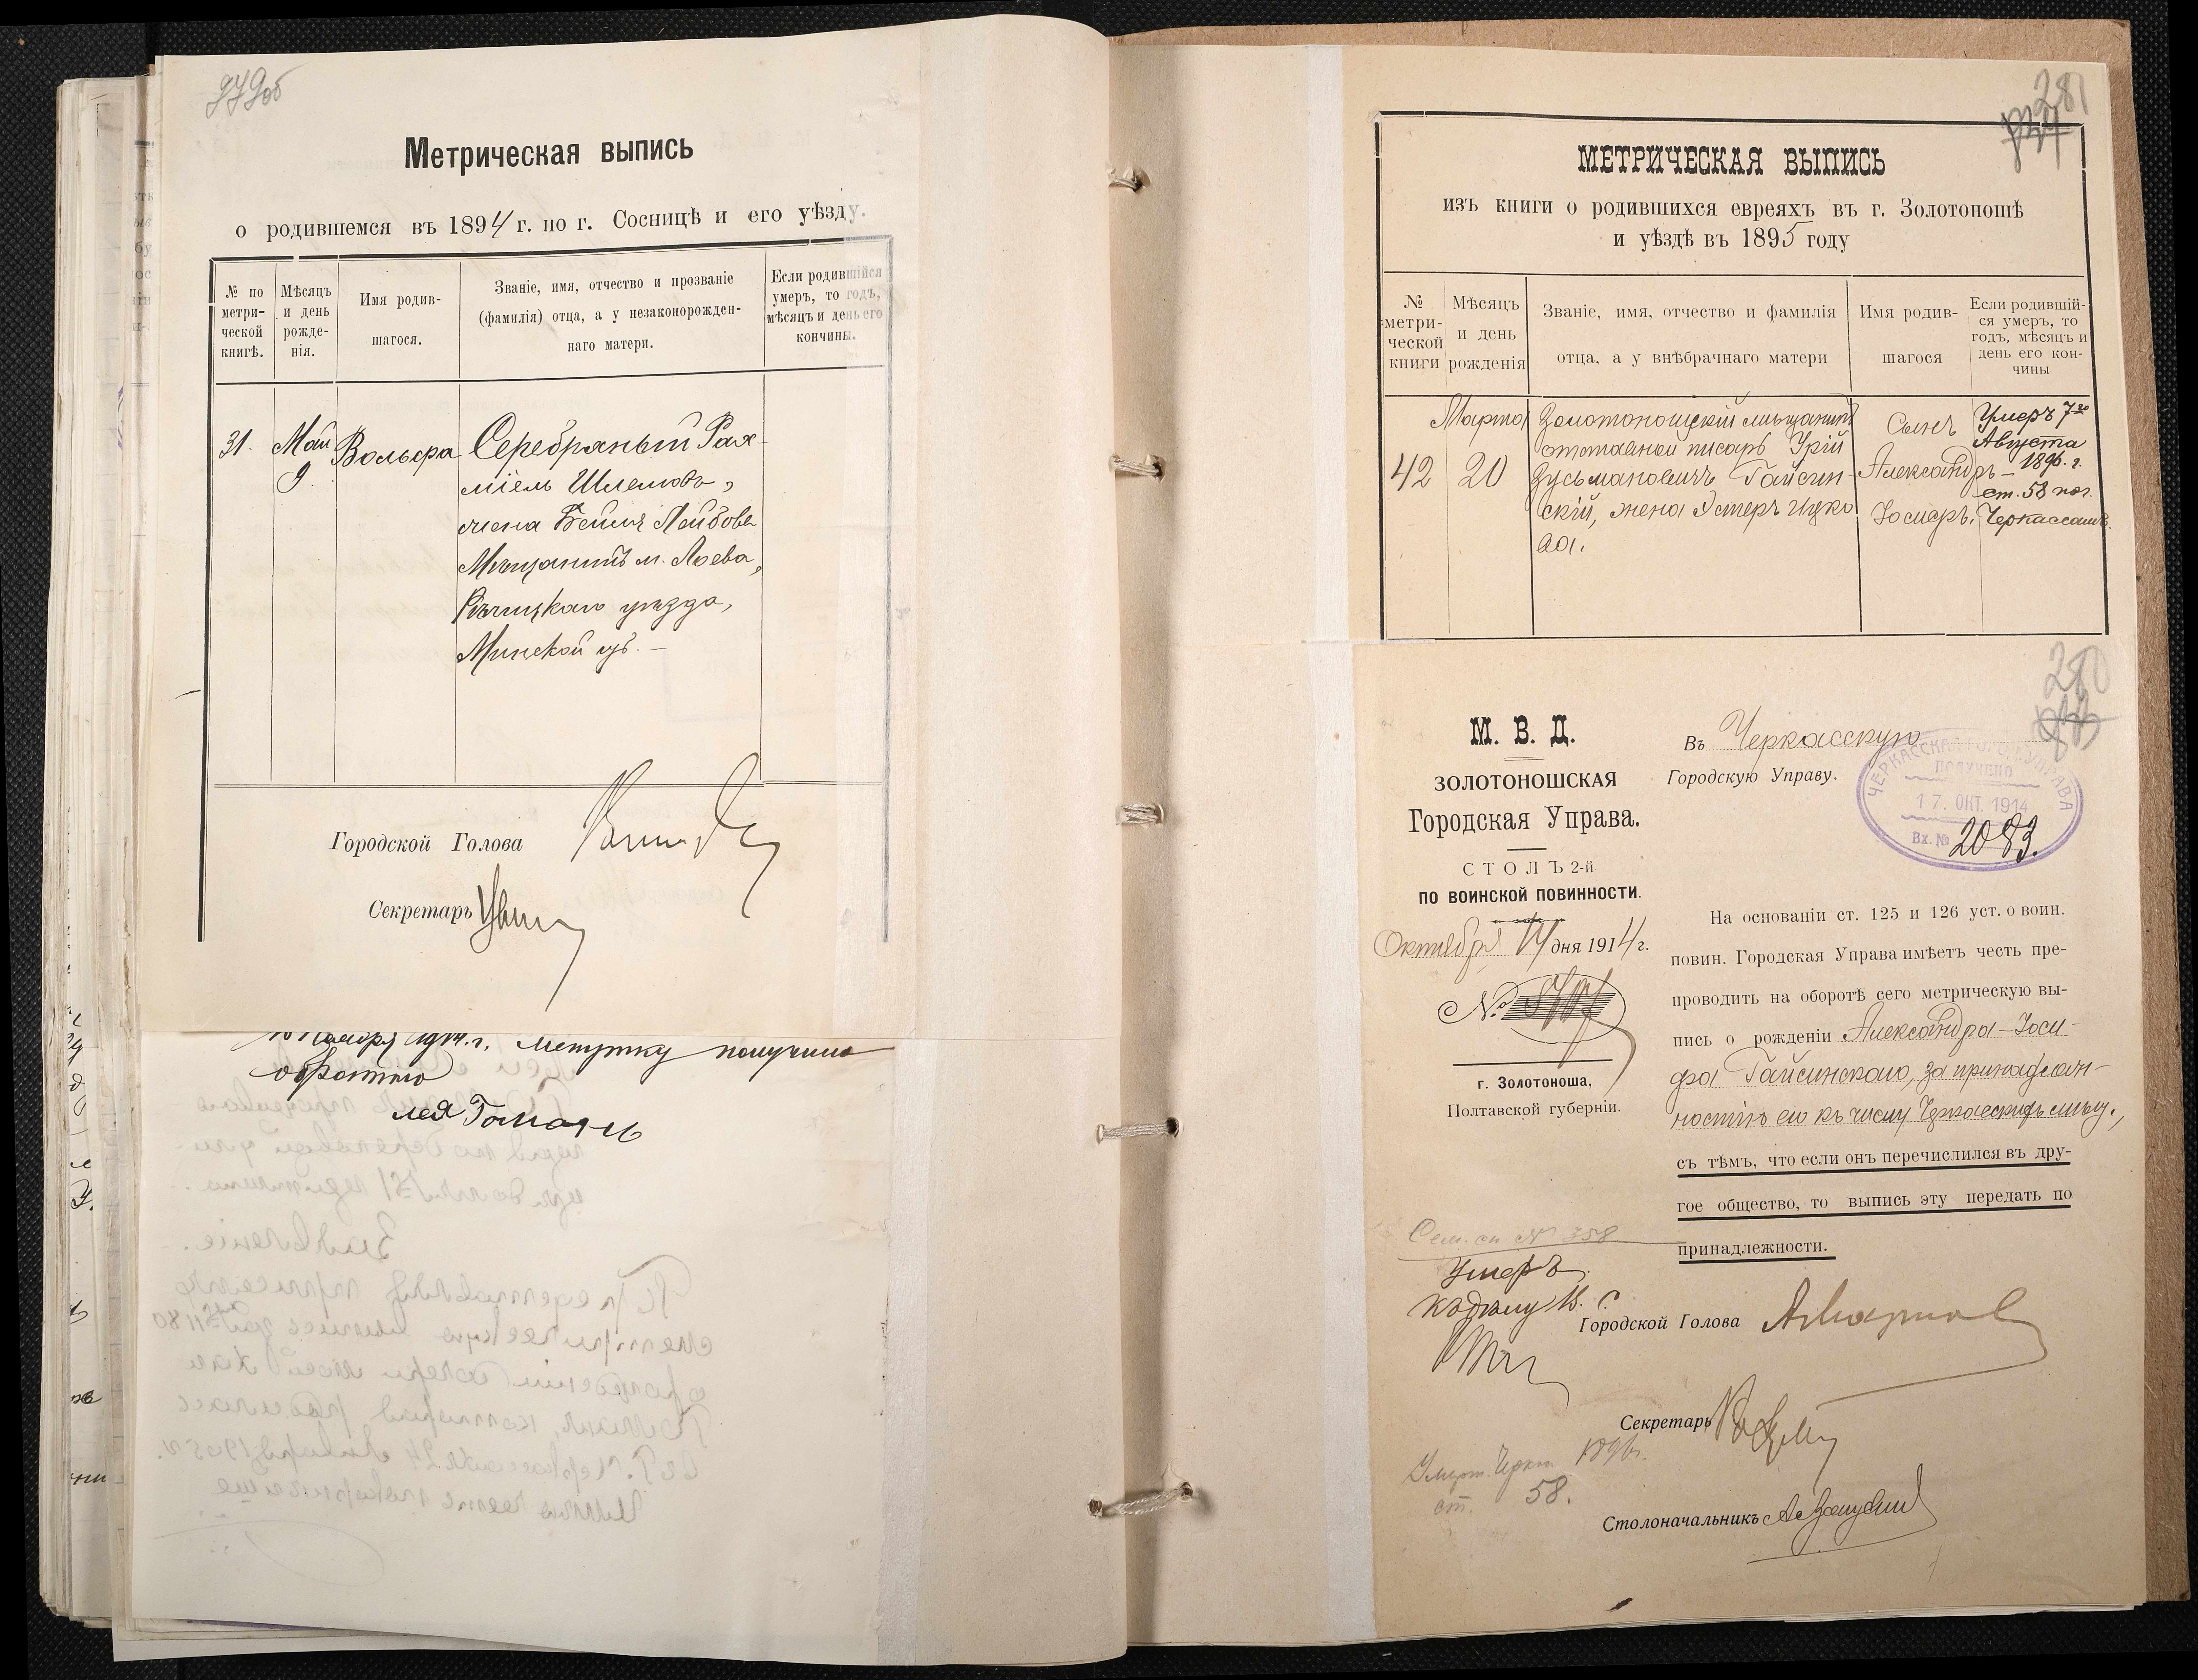 279об
Метрическая выпись
о родившемся въ 1894 г. по г. Сосницѣ и его уѣзду.
№ по метри-ческой книгѣ.
Мѣсяцъ и день рожде-нія.
Имя родив-шагося.
Званіе, имя, отчество и прозваніе (фамилія) отца, а у незаконорожден-наго матери.
Если родившійся умеръ, то годъ, мѣсяцъ и день его кончины.
31.
Май 9.
Вольфа
Серебряный Рах-
міель Шлемовъ,
жена Бейля Лейбова
Мѣщанинъ м. Лоева,
Рѣчицкаго уѣзда,
Минской губ. —
Городской Голова
Секретарь
10 Ноября 1914 г. Метрику получила
обратно
Лея
281
МЕТРИЧЕСКАЯ ВЫПИСЬ
изъ книги о родившихся евреяхъ въ г. Золотоношѣ
и уѣздѣ въ 1895 году
№ метри-ческой книги
Мѣсяцъ и день рожденія
Званіе, имя, отчество и фамилія отца, а у внѣбрачнаго матери
Имя родив-шагося
Если родившій-ся умеръ, то годъ, мѣсяцъ и день его кон-чины
42
Марта 20
Золотоношскій мѣщанинъ
отставной писарь Урій
Зусьмановичъ Гайсин-
скій, жена Эстеръ Ицко
ва.
Сынъ
Александръ —
Іосифъ.
Умеръ 7го
Августа
1896. г.
ст. 58 пог.
Черкассахъ.
280
М. В. Д.
ЗОЛОТОНОШСКАЯ
Городская Управа.
СТОЛЪ 2-й
ПО ВОИНСКОЙ ПОВИННОСТИ.
Октября 14 дня 1914 г.
№
г. Золотоноша,
Полтавской губерніи.
Въ Черкасскую
Городскую Управу.
ЧЕРКАССКАЯ ГОРОД. УПРАВА
ПОЛУЧЕНО
17. ОКТ. 1914
Вх. № 2083.
На основаніи ст. 125 и 126 уст. о воин.
повин. Городская Управа имѣетъ честь пре-
проводить на оборотѣ сего метрическую вы-
пись о рожденіи Александра-Іоси-
фа Гайсинскаго, за принадлеж-
ностію его къ числу Черкасскихъ мѣщ.,
съ тѣмъ, что если онъ перечислился въ дру-
гое общество, то выпись эту передать по
принадлежности.
Сем. сп № 358
Умеръ.
Къ дѣлу
Городской Голова
Секретарь
Умерт. Черкас 1896 г.
ст. 58.
Столоначальникъ